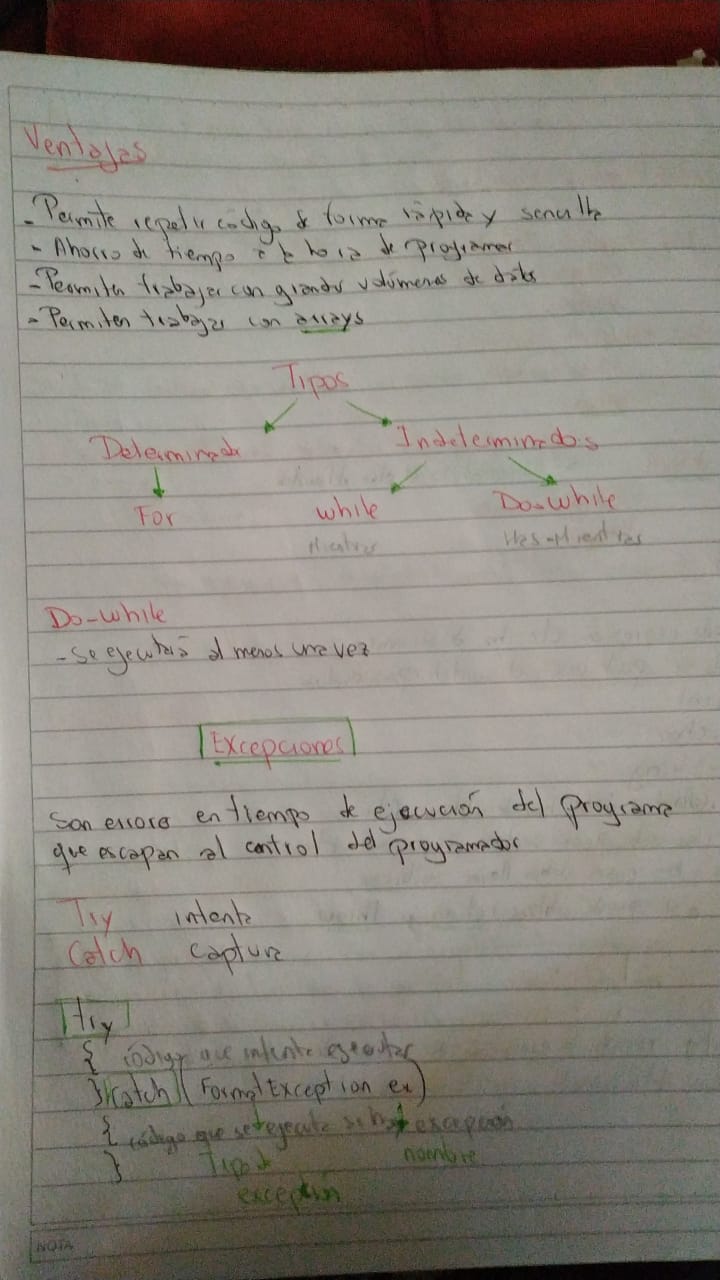 Ventajas
- Permite repetir código de forma rápida y sencilla
- Ahorro de tiempo a la hora de programar
- Permiten trabajar con grandes volúmenes de datos
- Permiten trabajar con arrays
Tipos
Determinado Indeterminados
For while Do-while
Mientras Has-Mientras
Do-while
- Se ejecutará al menos una vez
Excepciones
Son errores en tiempo de ejecución del programa
que escapan al control del programador
Try intenta
Catch captura
try
{ código que intenta ejecutar
} catch (FormatException ex)
{ código que se ejecuta si hay excepción
} Tipo de nombre
excepción
NOTA